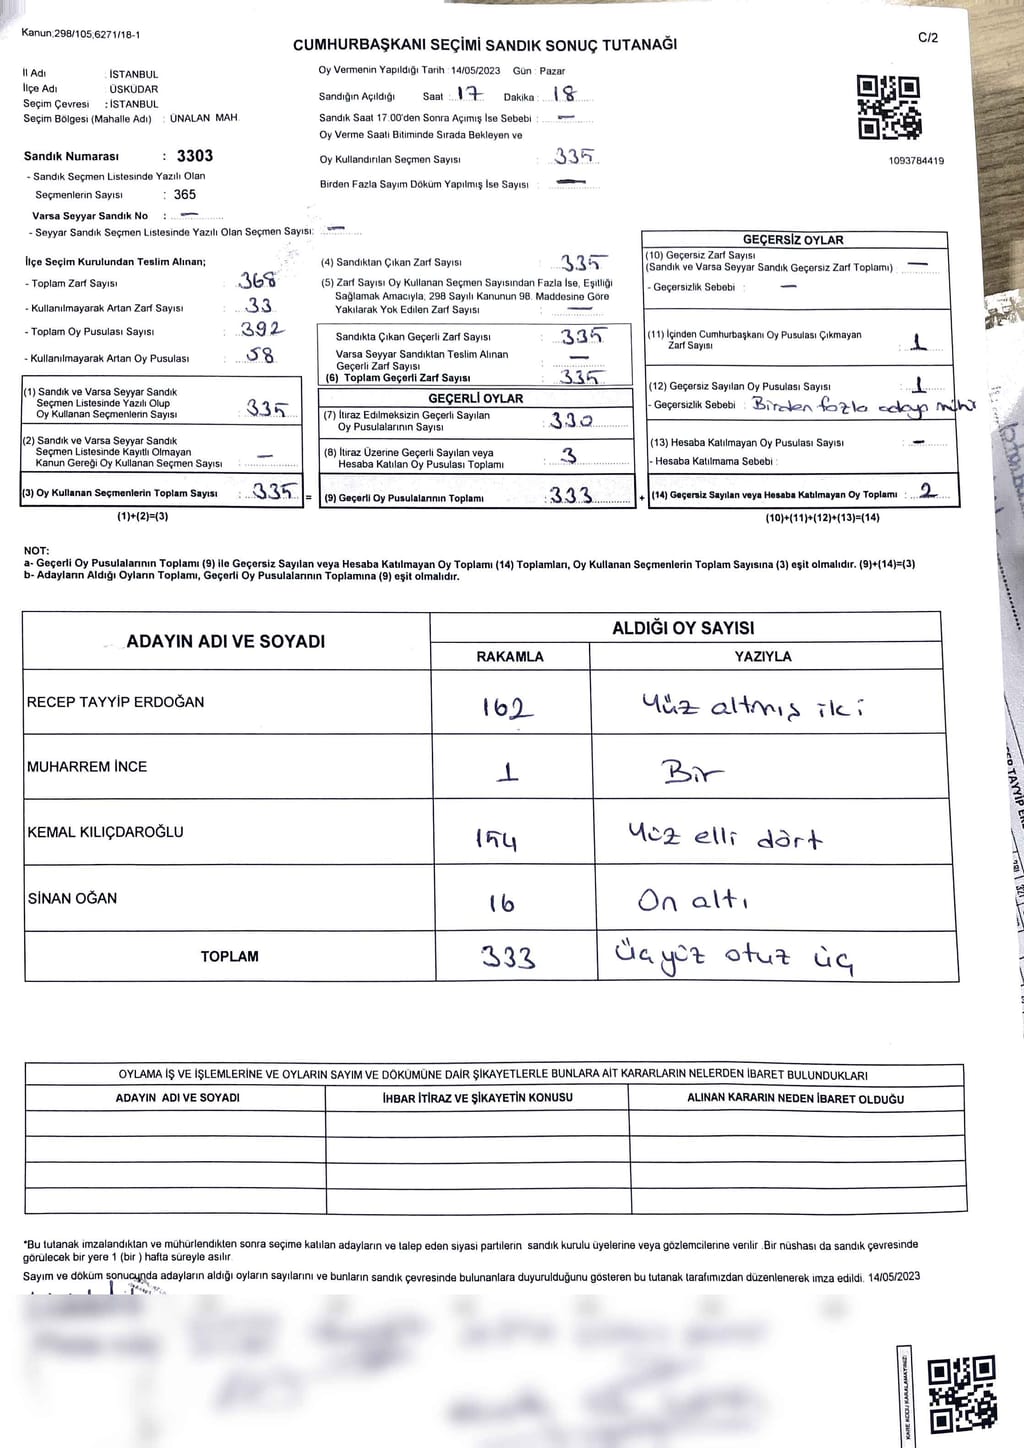 Kanun;298/105,6271/18-1
C/2
CUMHURBAŞKANI SEÇİMİ SANDIK SONUÇ TUTANAĞI
İl Adı : İSTANBUL
İlçe Adı : ÜSKÜDAR
Seçim Çevresi : İSTANBUL
Seçim Bölgesi (Mahalle Adı) : ÜNALAN MAH.
Sandık Numarası : 3303
- Sandık Seçmen Listesinde Yazılı Olan
Seçmenlerin Sayısı : 365
Varsa Seyyar Sandık No : —
- Seyyar Sandık Seçmen Listesinde Yazılı Olan Seçmen Sayısı: —
Oy Vermenin Yapıldığı Tarih :14/05/2023 Gün : Pazar
Sandığın Açıldığı Saat : 17 Dakika : 18
Sandık Saat 17:00'den Sonra Açımış İse Sebebi : —
Oy Verme Saati Bitiminde Sırada Bekleyen ve
Oy Kullandırılan Seçmen Sayısı : 335
Birden Fazla Sayım Döküm Yapılmış İse Sayısı : —
1093784419
İlçe Seçim Kurulundan Teslim Alınan;
- Toplam Zarf Sayısı : 368
- Kullanılmayarak Artan Zarf Sayısı : 33
- Toplam Oy Pusulası Sayısı : 392
- Kullanılmayarak Artan Oy Pusulası : 58
(1) Sandık ve Varsa Seyyar Sandık
Seçmen Listesinde Yazılı Olup
Oy Kullanan Seçmenlerin Sayısı : 335
(2) Sandık ve Varsa Seyyar Sandık
Seçmen Listesinde Kayıtlı Olmayan
Kanun Gereği Oy Kullanan Seçmen Sayısı : —
(3) Oy Kullanan Seçmenlerin Toplam Sayısı : 335 =
(1)+(2)=(3)
(4) Sandıktan Çıkan Zarf Sayısı : 335
(5) Zarf Sayısı Oy Kullanan Seçmen Sayısından Fazla İse, Eşitliği
Sağlamak Amacıyla, 298 Sayılı Kanunun 98. Maddesine Göre
Yakılarak Yok Edilen Zarf Sayısı : —
Sandıkta Çıkan Geçerli Zarf Sayısı : 335
Varsa Seyyar Sandıktan Teslim Alınan
Geçerli Zarf Sayısı : —
(6) Toplam Geçerli Zarf Sayısı : 335
GEÇERLİ OYLAR
(7) İtiraz Edilmeksizin Geçerli Sayılan
Oy Pusulalarının Sayısı : 330
(8) İtiraz Üzerine Geçerli Sayılan veya
Hesaba Katılan Oy Pusulası Toplamı : 3
(9) Geçerli Oy Pusulalarının Toplamı : 333 +
GEÇERSİZ OYLAR
(10) Geçersiz Zarf Sayısı
(Sandık ve Varsa Seyyar Sandık Geçersiz Zarf Toplamı) : —
- Geçersizlik Sebebi : —
(11) İçinden Cumhurbaşkanı Oy Pusulası Çıkmayan
Zarf Sayısı : 1
(12) Geçersiz Sayılan Oy Pusulası Sayısı : 1
- Geçersizlik Sebebi : Birden fazla adaya mühür
(13) Hesaba Katılmayan Oy Pusulası Sayısı : —
- Hesaba Katılmama Sebebi :
(14) Geçersiz Sayılan veya Hesaba Katılmayan Oy Toplamı : 2
(10)+(11)+(12)+(13)=(14)
NOT:
a- Geçerli Oy Pusulalarının Toplamı (9) ile Geçersiz Sayılan veya Hesaba Katılmayan Oy Toplamı (14) Toplamları, Oy Kullanan Seçmenlerin Toplam Sayısına (3) eşit olmalıdır. (9)+(14)=(3)
b- Adayların Aldığı Oyların Toplamı, Geçerli Oy Pusulalarının Toplamına (9) eşit olmalıdır.
ADAYIN ADI VE SOYADI
ALDIĞI OY SAYISI
RAKAMLA YAZIYLA
RECEP TAYYİP ERDOĞAN 162 Yüz altmış iki
MUHARREM İNCE 1 Bir
KEMAL KILIÇDAROĞLU 154 Yüz elli dört
SİNAN OĞAN 16 On altı
TOPLAM 333 Üçyüz otuz üç
OYLAMA İŞ VE İŞLEMLERİNE VE OYLARIN SAYIM VE DÖKÜMÜNE DAİR ŞİKAYETLERLE BUNLARA AİT KARARLARIN NELERDEN İBARET BULUNDUKLARI
ADAYIN ADI VE SOYADI İHBAR İTİRAZ VE ŞİKAYETİN KONUSU ALINAN KARARIN NEDEN İBARET OLDUĞU
*Bu tutanak imzalandıktan ve mühürlendikten sonra seçime katılan adayların ve talep eden siyasi partilerin sandık kurulu üyelerine veya gözlemcilerine verilir .Bir nüshası da sandık çevresinde
görülecek bir yere 1 (bir ) hafta süreyle asılır.
Sayım ve döküm sonucunda adayların aldığı oyların sayılarını ve bunların sandık çevresinde bulunanlara duyurulduğunu gösteren bu tutanak tarafımızdan düzenlenerek imza edildi. 14/05/2023
KARE KODU KARALAMAYINIZ!